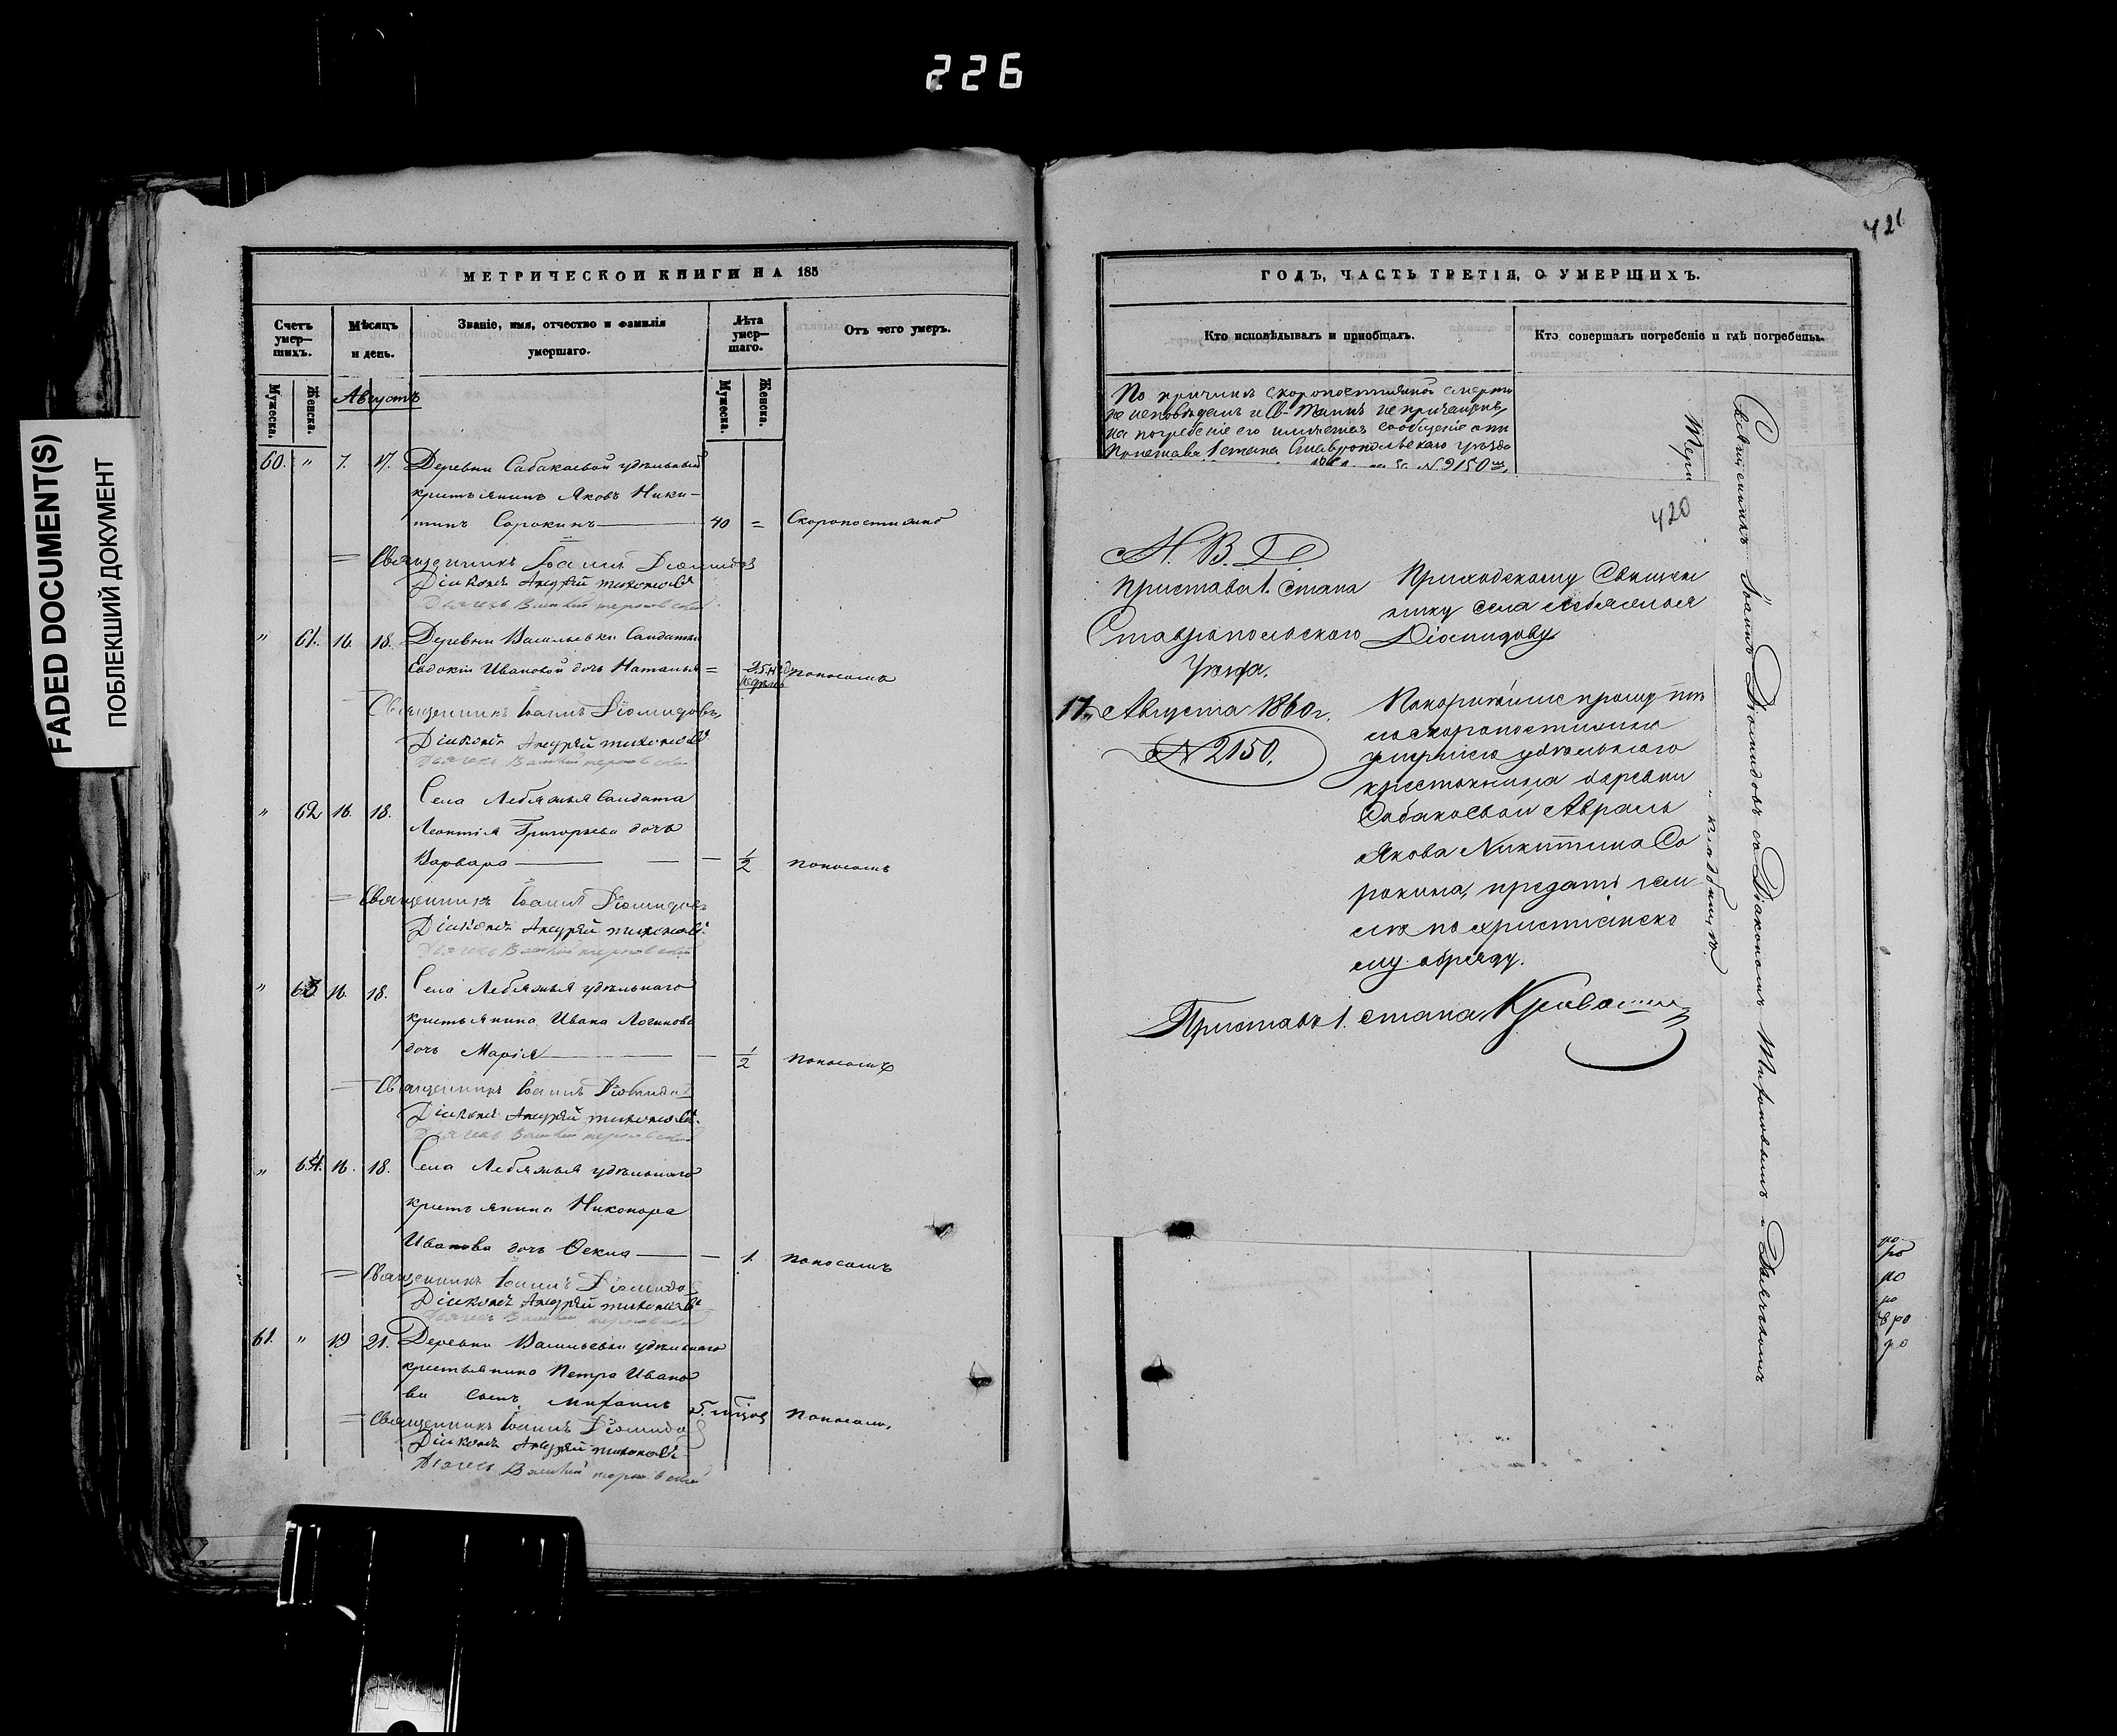 226
FADED DOCUMENT(S)
ПОБЛЕКШИЙ ДОКУМЕНТ
МЕТРИЧЕСКОЙ КНИГИ НА 185
Счетъ умер—шихъ.
Мѣсяцъ и день.
Званіе, имя, отчество и фамилія умершаго.
Лѣта умер—шаго.
Отъ чего умеръ.
Мужеска.
Женска.
Мужеска.
Женска.
Августъ
60. " 7. 17. Деревни Сабакаевой удѣльный
крестьянинъ Яковъ Ники-
тинъ Сорокинъ — 40 = Скоропостижно
= Священникъ Іоаннъ Діомидовъ
Діаконъ Андрей Тихоновъ
Дьячекъ
" 61. 16. 18. Деревни Васильевки Солдатки
Евдокіи Ивановой дочь Наталья = поносомъ
Священникъ Іоаннъ Діомидовъ
Діаконъ Андрей Тихоновъ
Дьячекъ
" 62 16. 18. Села Лебяжья Солдата
Леонтія Григорьева дочь
Варвара — — — 1/2 поносомъ
= Священникъ Іоаннъ Діомидовъ
Діаконъ Андрей Тихоновъ
Дьячекъ
" 63. 16. 18. Села Лебяжья удѣльнаго
крестьянина Ивана Логинова
дочь Марія — — — 1/2 поносомъ
= Священникъ Іоаннъ Діомидовъ
Діаконъ Андрей Тихоновъ
Дьячекъ
" 64. 16. 18. Села Лебяжья удѣльнаго
крестьянина Никонора
Иванова дочь Ѳекла — — 1. поносомъ
= Священникъ Іоаннъ Діомидовъ
Діаконъ Андрей Тихоновъ
Дьячекъ
61. " 19 21. Деревни Васильевки удѣльнаго
крестьянина Петра Ивано
ва сынъ 5. поносомъ
= Священникъ Іоаннъ Діомидовъ
Діаконъ Андрей Тихоновъ
Дьячекъ
421
ГОДЪ, ЧАСТЬ ТРЕТІЯ, О УМЕРШИХЪ.
Кто исповѣдывалъ и пріобщалъ.
Кто совершалъ погребеніе и гдѣ погребены.
По причинѣ скоропостижной смерти
не исповѣданъ и Св. Таинъ не причащенъ
на погребеніе его имѣется сообщеніе отъ
Пристава 1 стана Ставропольскаго уѣзда
№ 2150
420
М. В. Д.
Пристава 1. стана
Ставропольскаго
Уѣзда.
17 Августа 1860 г.
№ 2150.
Приходскому Священ
нику села Лебяжья
Діомидову
Покорнѣйше прошу тѣ
ло скоропостижно
умершаго удѣльнаго
крестьянина деревни
Сабакаевой
Якова Никитина Со
рокина, предать зем
лѣ по христіанско
му обряду.
Приставъ 1. стана
Священникъ Іоаннъ Діомидовъ съ Діакономъ Тихоновымъ и Дьячькомъ
кладбищѣ.